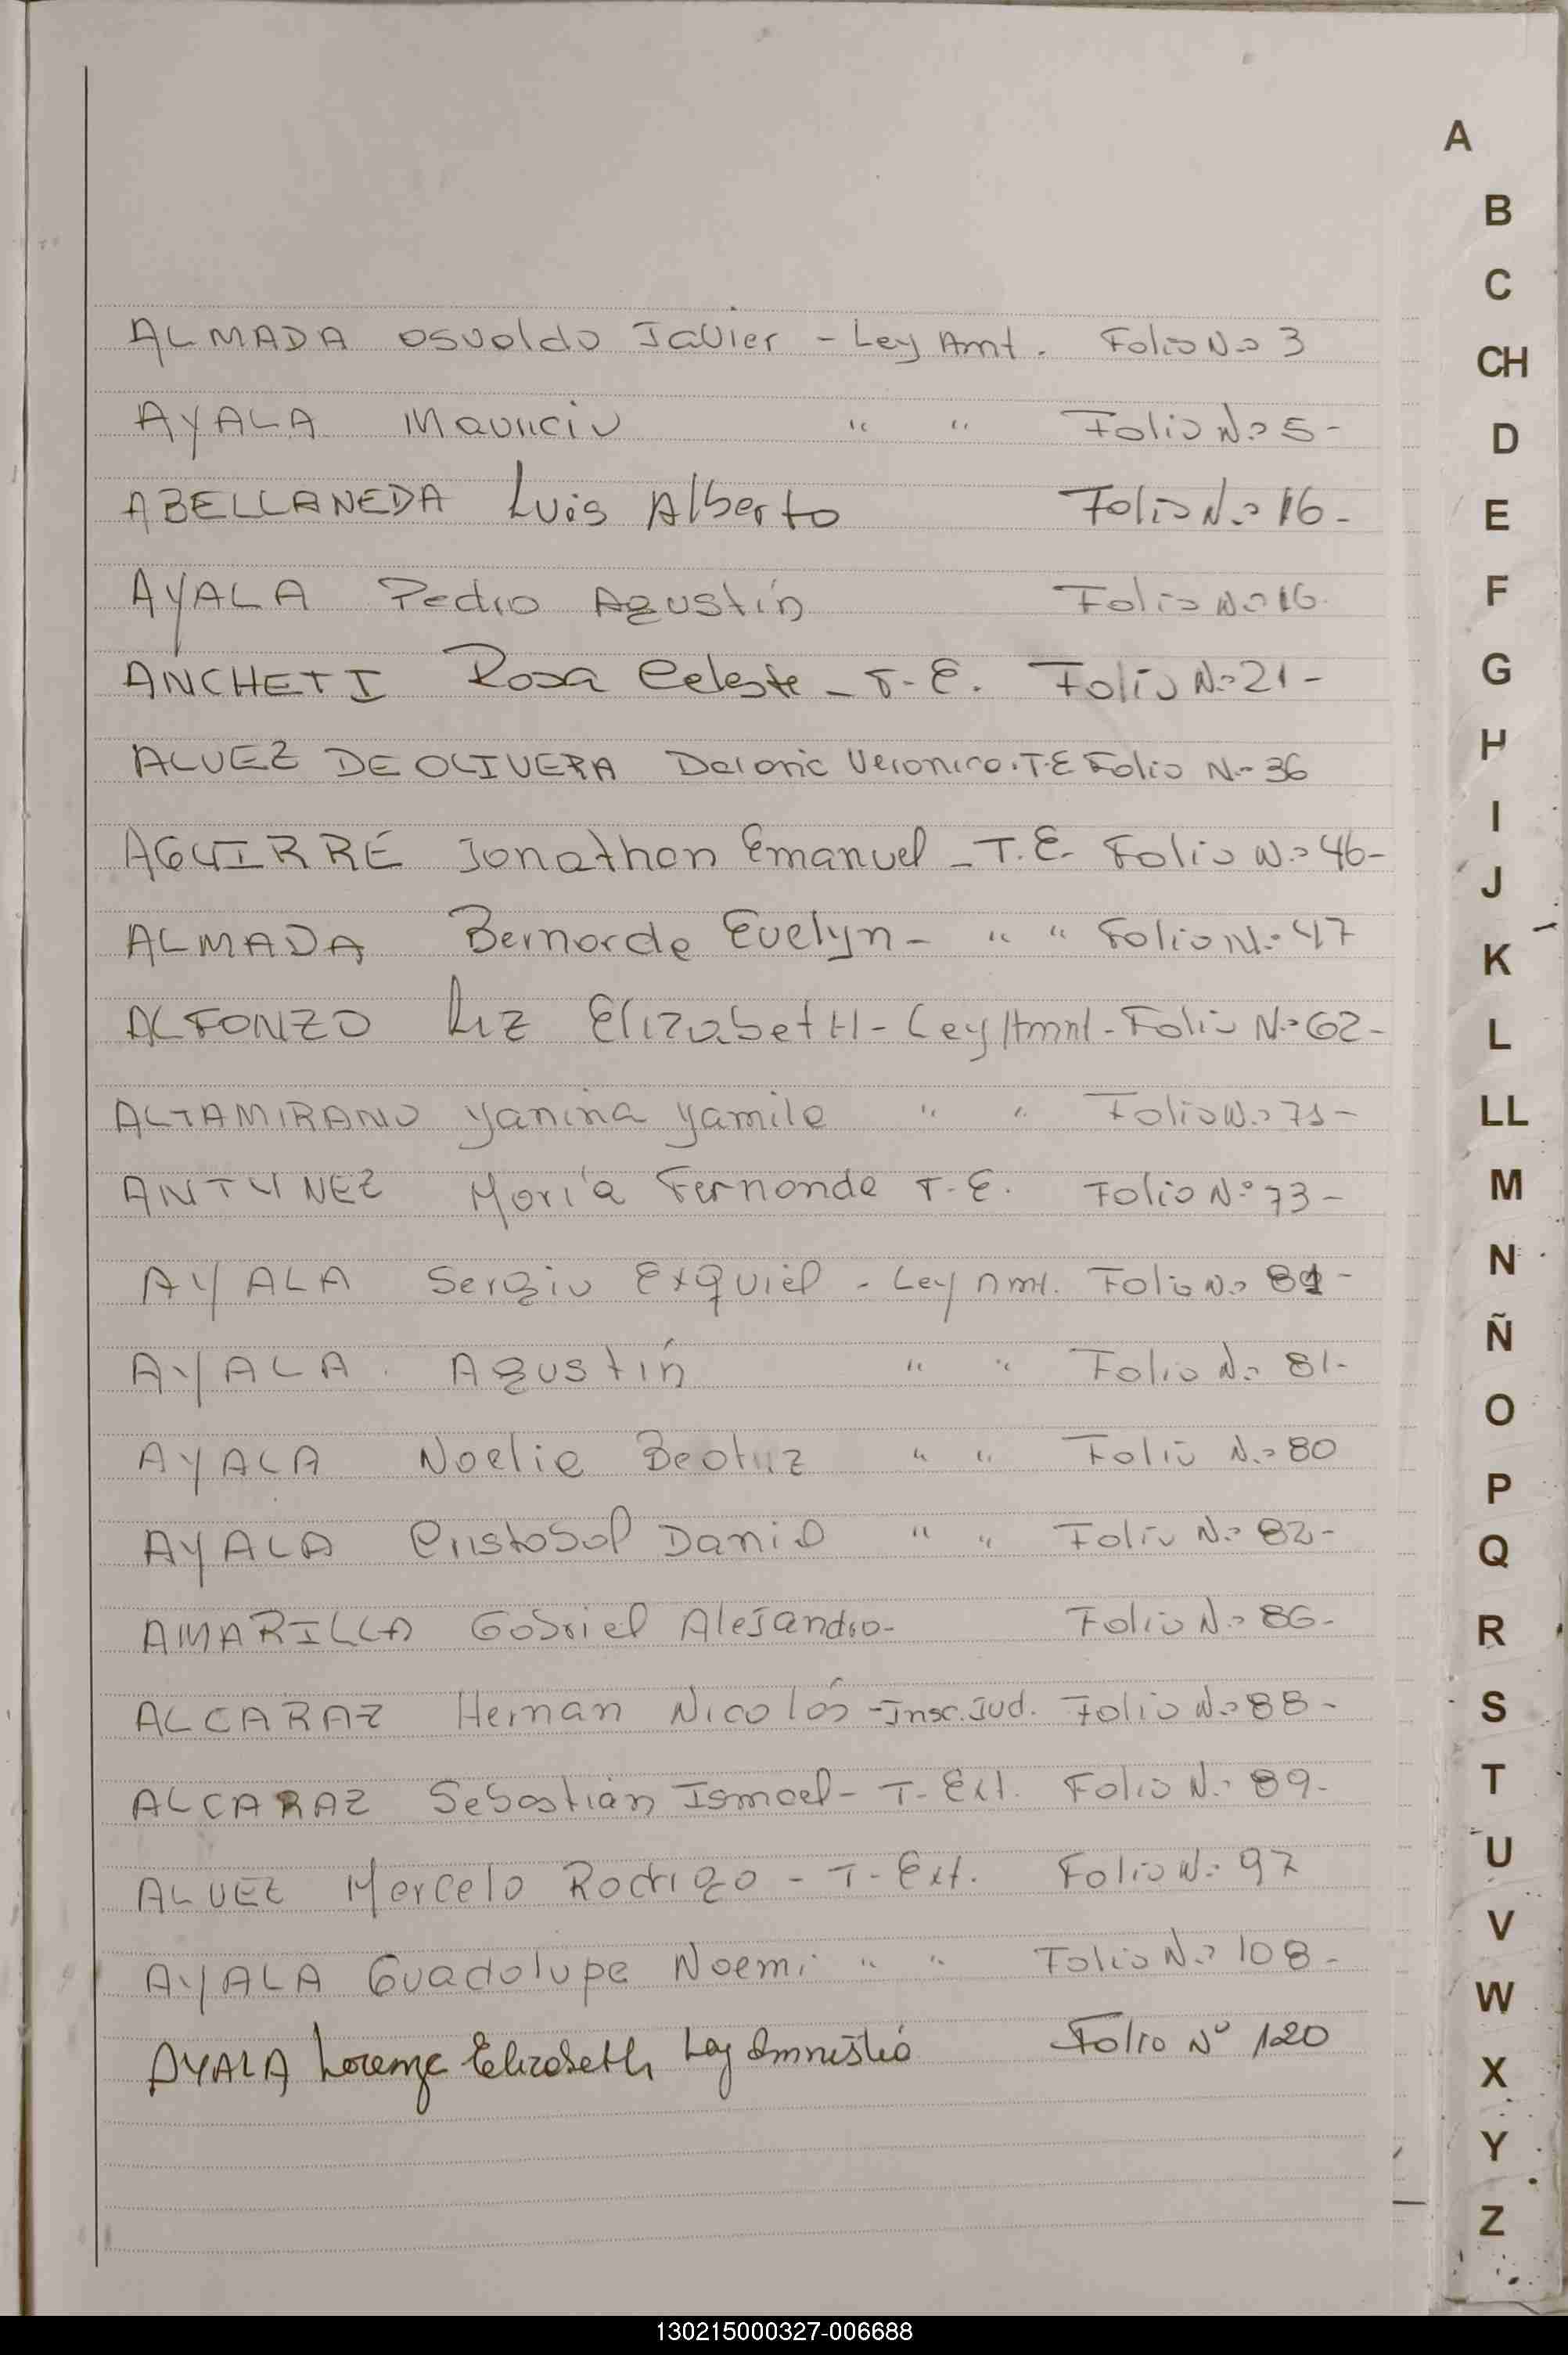 ALMADA Osvaldo Javier - Ley Amt. Folio N.º 3
AYALA Mauricio " " Folio N.º 5-
ABELLANEDA Luis Alberto Folio N.º 16-
AYALA Pedro Agustín Folio N.º 16.
ANCHETI Rosa Celeste - T-E. Folio N.º 21-
ALVEZ DE OLIVERA Veronica. T.E Folio N.º 36
AGUIRRE Jonathan Emanuel - T.E. Folio N.º 46-
ALMADA Bernarda Evelyn - " " Folio N.º 47
ALFONZO Liz Elizabeth - Ley Amnt - Folio N.º 62-
ALTAMIRANO Yanina Yamila " " Folio N.º 71-
ANTUNEZ María Fernanda T.E. Folio Nº 73-
AYALA Sergio Exquiel - Ley Amt. Folio N.º 81-
AYALA. Agustín " " Folio N.º 81-
AYALA Noelia Beatriz " " Folio N.º 80
AYALA Cristobal Daniel " " Folio N.º 82-
AMARILLA Gabriel Alejandro- Folio N.º 86-
ALCARAZ Hernan Nicolás - Insc. Jud. Folio N.º 88-
ALCARAZ Sebastián Ismael - T-Ext. Folio N.º 89-
ALVEZ Marcelo Rodrigo - T-Ext. Folio N.º 97
AYALA Guadalupe Noemi " " Folio N.º 108-
AYALA Lorenza Elizabeth Ley Amnistía Folio Nº 120
A
B
C
CH
D
E
F
G
H
I
J
K
L
LL
M
N
Ñ
O
P
Q
R
S
T
U
V
W
X
Y
Z
130215000327-006688